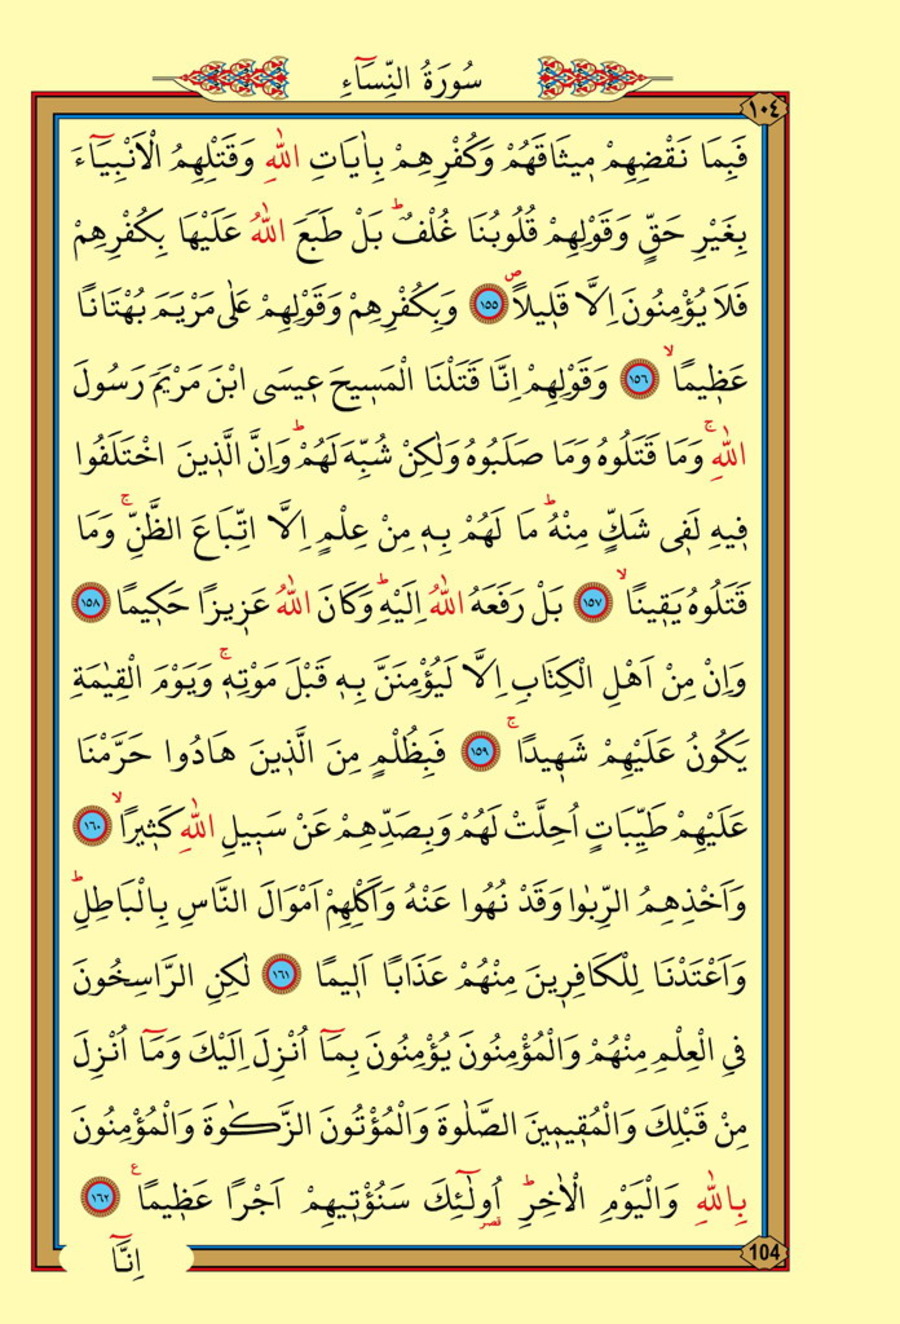 سُورَةُ النِّسَٓاءِ
١٠٤
فَبِمَا نَقْضِهِمْ م۪يثَاقَهُمْ وَكُفْرِهِمْ بِاٰيَاتِ اللّٰهِ وَقَتْلِهِمُ الْاَنْبِيَٓاءَ
بِغَيْرِ حَقٍّ وَقَوْلِهِمْ قُلُوبُنَا غُلْفٌۜ بَلْ طَبَعَ اللّٰهُ عَلَيْهَا بِكُفْرِهِمْ
فَلَا يُؤْمِنُونَ اِلَّا قَل۪يلاًۖ ١٥٥ وَبِكُفْرِهِمْ وَقَوْلِهِمْ عَلٰى مَرْيَمَ بُهْتَانًا
عَظ۪يمًاۙ ١٥٦ وَقَوْلِهِمْ اِنَّا قَتَلْنَا الْمَس۪يحَ ع۪يسَى ابْنَ مَرْيَمَ رَسُولَ
اللّٰهِۚ وَمَا قَتَلُوهُ وَمَا صَلَبُوهُ وَلٰكِنْ شُبِّهَ لَهُمْۜ وَاِنَّ الَّذ۪ينَ اخْتَلَفُوا
ف۪يهِ لَف۪ي شَكٍّ مِنْهُۜ مَا لَهُمْ بِه۪ مِنْ عِلْمٍ اِلَّا اتِّبَاعَ الظَّنِّۚ وَمَا
قَتَلُوهُ يَق۪ينًاۙ ١٥٧ بَلْ رَفَعَهُ اللّٰهُ اِلَيْهِۜ وَكَانَ اللّٰهُ عَز۪يزًا حَك۪يمًا ١٥٨
وَاِنْ مِنْ اَهْلِ الْكِتَابِ اِلَّا لَيُؤْمِنَنَّ بِه۪ قَبْلَ مَوْتِه۪ۚ وَيَوْمَ الْقِيٰمَةِ
يَكُونُ عَلَيْهِمْ شَه۪يدًاۚ ١٥٩ فَبِظُلْمٍ مِنَ الَّذ۪ينَ هَادُوا حَرَّمْنَا
عَلَيْهِمْ طَيِّبَاتٍ اُحِلَّتْ لَهُمْ وَبِصَدِّهِمْ عَنْ سَب۪يلِ اللّٰهِ كَث۪يرًاۙ ١٦٠
وَاَخْذِهِمُ الرِّبٰوا وَقَدْ نُهُوا عَنْهُ وَاَكْلِهِمْ اَمْوَالَ النَّاسِ بِالْبَاطِلِۜ
وَاَعْتَدْنَا لِلْكَافِر۪ينَ مِنْهُمْ عَذَابًا اَل۪يمًا ١٦١ لٰكِنِ الرَّاسِخُونَ
فِي الْعِلْمِ مِنْهُمْ وَالْمُؤْمِنُونَ يُؤْمِنُونَ بِمَٓا اُنْزِلَ اِلَيْكَ وَمَٓا اُنْزِلَ
مِنْ قَبْلِكَ وَالْمُق۪يم۪ينَ الصَّلٰوةَ وَالْمُؤْتُونَ الزَّكٰوةَ وَالْمُؤْمِنُونَ
بِاللّٰهِ وَالْيَوْمِ الْاٰخِرِۜ اُو۬لٰٓئِكَ سَنُؤْت۪يهِمْ اَجْرًا عَظ۪يمًا ع ١٦٢
قصر
104
اِنَّٓا